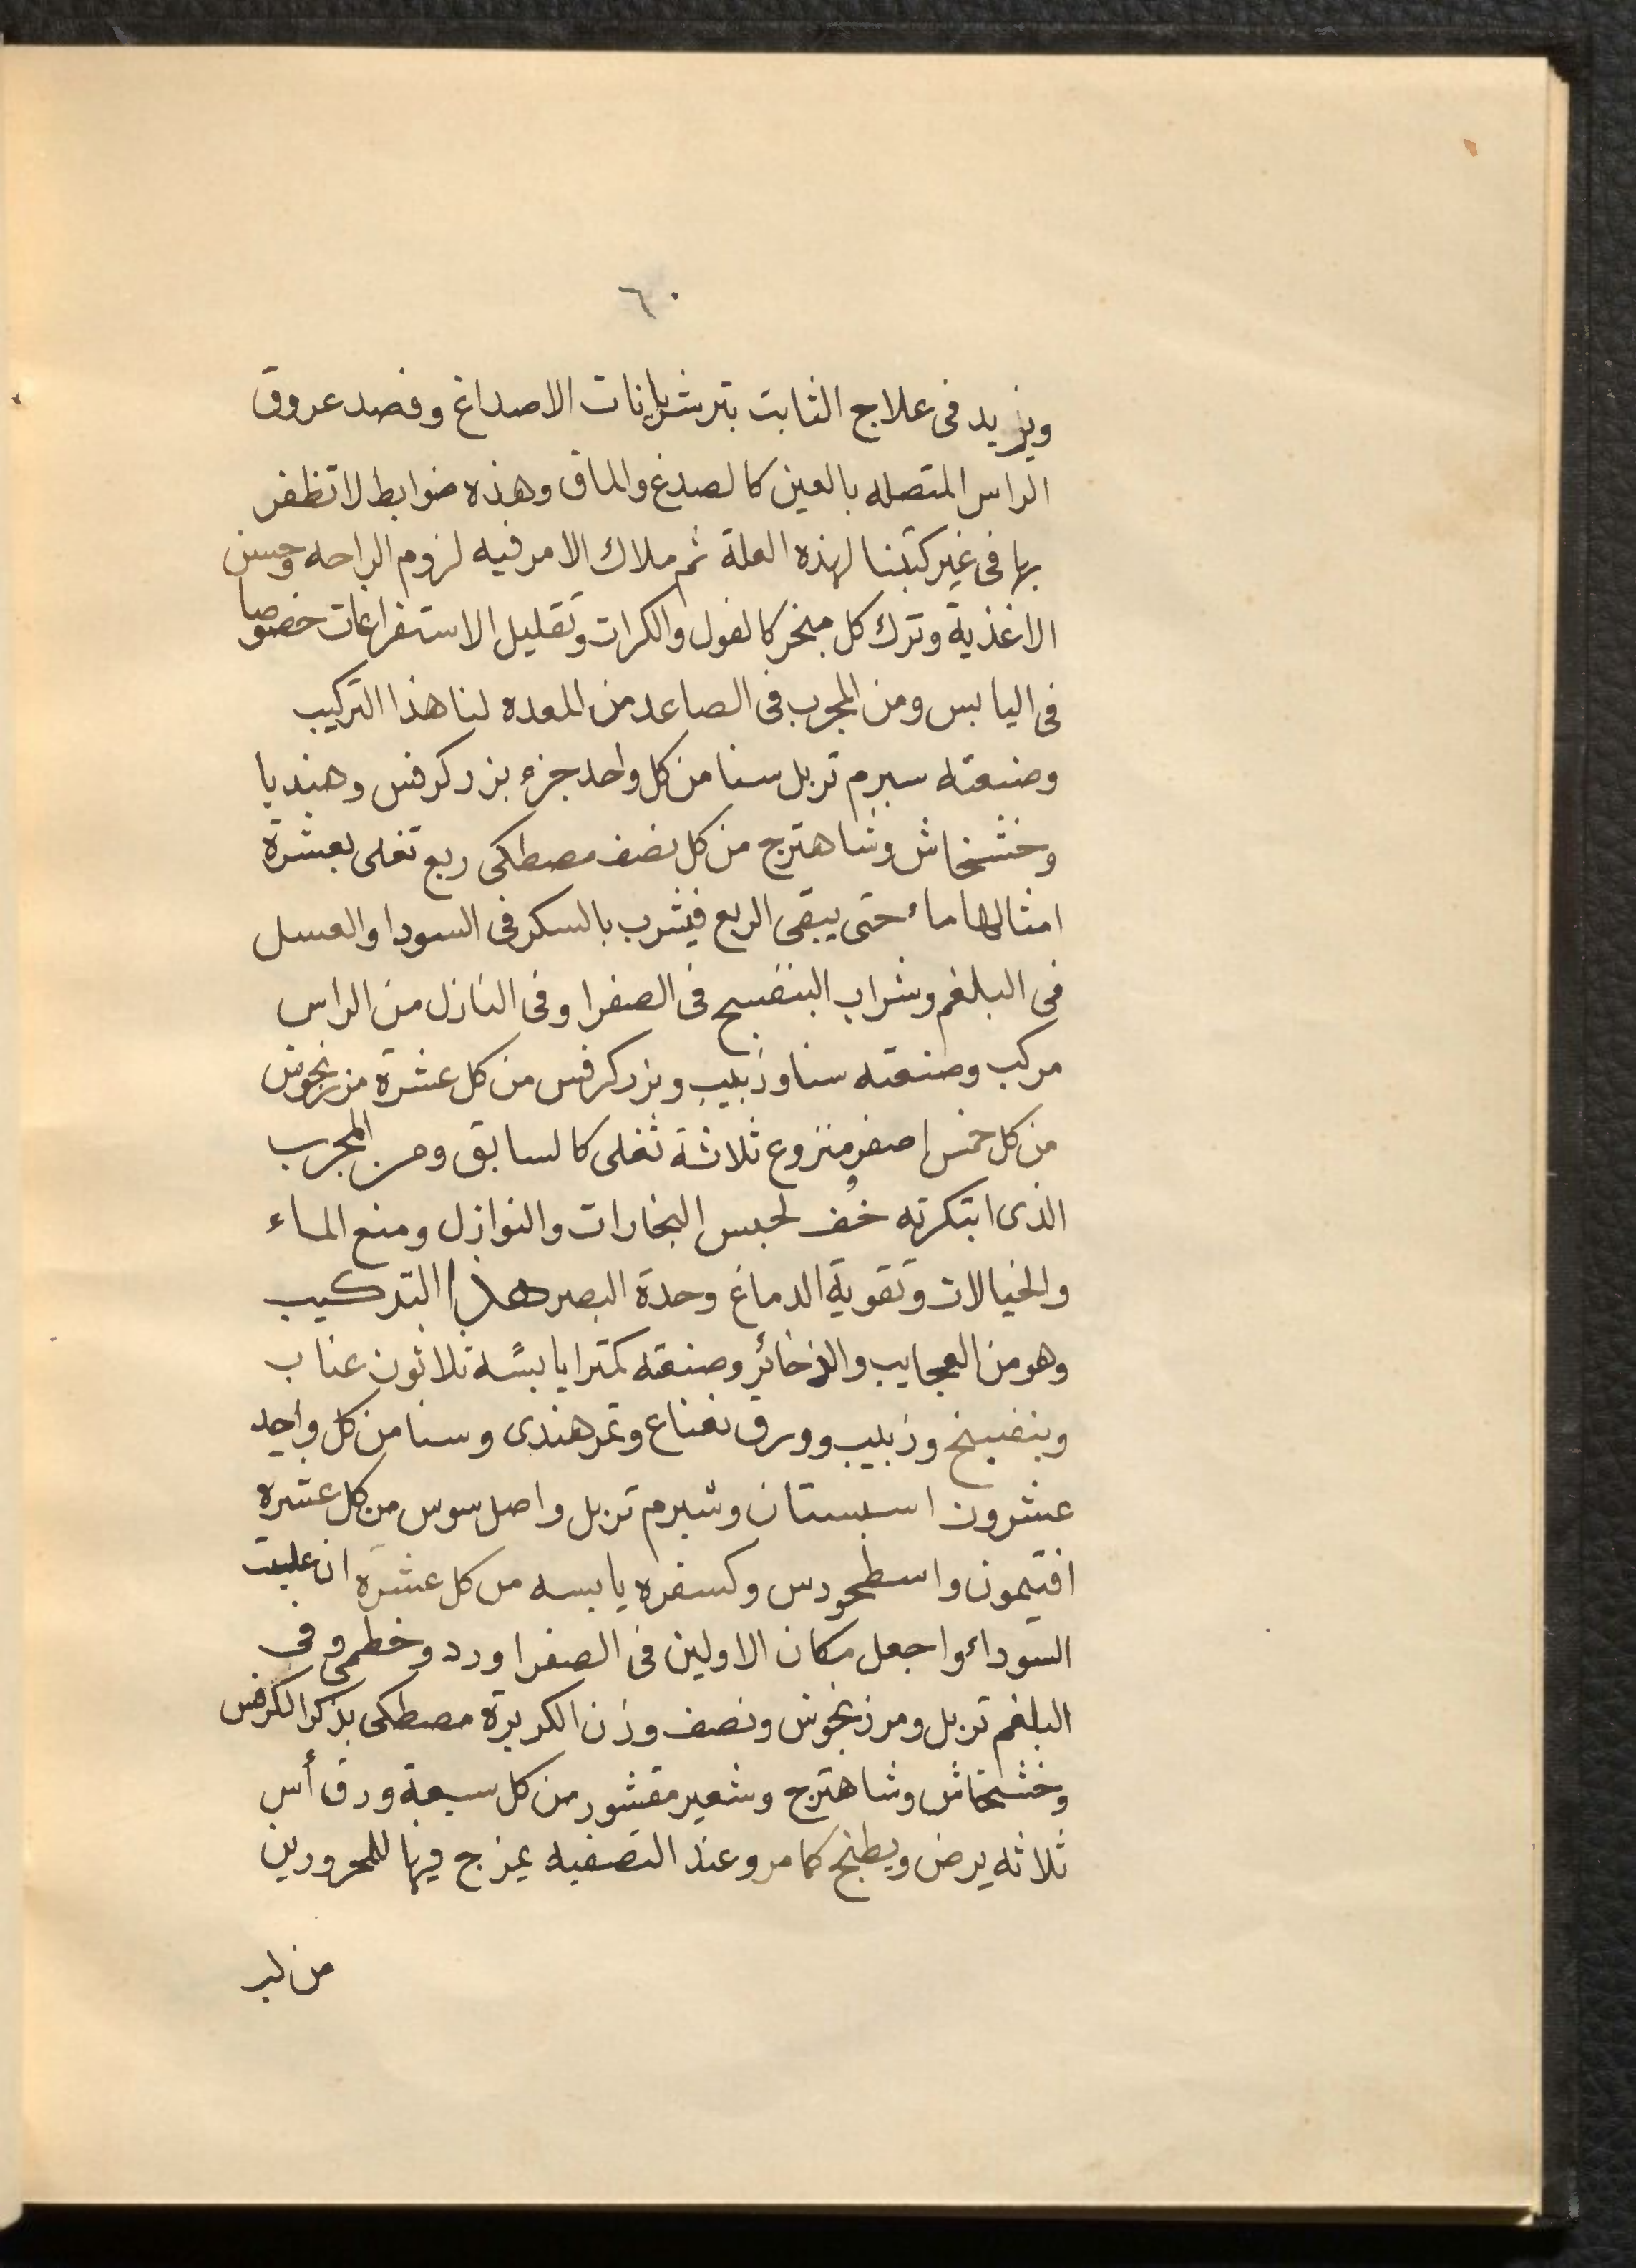 ٦٠
ويزيد فى علاج الثابت بتر شريانات الاصداغ وفصد عروق
الراس المتصله بالعين كالصدغ والماق وهذه ضوابط لا تظفر
بها فى غير كتبنا لهذه العلة ثم ملاك الامر فيه لزوم الراحه وحسن
الاغذية وترك كل مبخر كالفول والكرات وتقليل الاستفراغات خصوصا
فى اليابس ومن المجرب فى الصاعد من المعده لنا هذا التركيب
وصنعته سبرم تربل سنا من كل واحد جزء بزر كرفس وهنديا
وخشخاش وشاهترج من كل نصف مصطكى ربع تغلى بعشرة
امثالها ماء حتى يبقى الربع فيشرب بالسكر فى السودا والعسل
فى البلغم وشراب البنفسج فى الصفرا وفى النازل من الراس
مركب وصنعته سنا وزبيب وبزر كرفس من كل عشرة مرزنجوش
من كل خمس اصفر منزوع ثلاثة تغلى كالسابق ومن المجرب
الذى ابتكرته خُف لحبس البخارات والنوازل ومنع الماء
والخيالات وتقوية الدماغ وحدة البصر هذا التركيب
وهو من العجايب والذخائر وصنعته كمترا يابسة ثلاثون عناب
وبنفسج وزبيب وورق نعناع وتمر هندى وسنا من كل واحد
عشرون اسبستان وشبرم تربل واصل سوس من كل عشره
افتيمون واسطحودس وكسفره يابسه من كل عشره ان غلبت
السوداء واجعل مكان الاولين فى الصفرا ورد وخطمى وفى
البلغم تربل ومرزنجوش ونصف وزن الكربرة مصطكى بذكر الكرفس
وخشخاش وشاهترج وشعير مقشور من كل سبعة ورق أس
ثلاثه يرض ويطبخ كما مر وعند التصفيه يمزج فيها للمحرورين
من لب